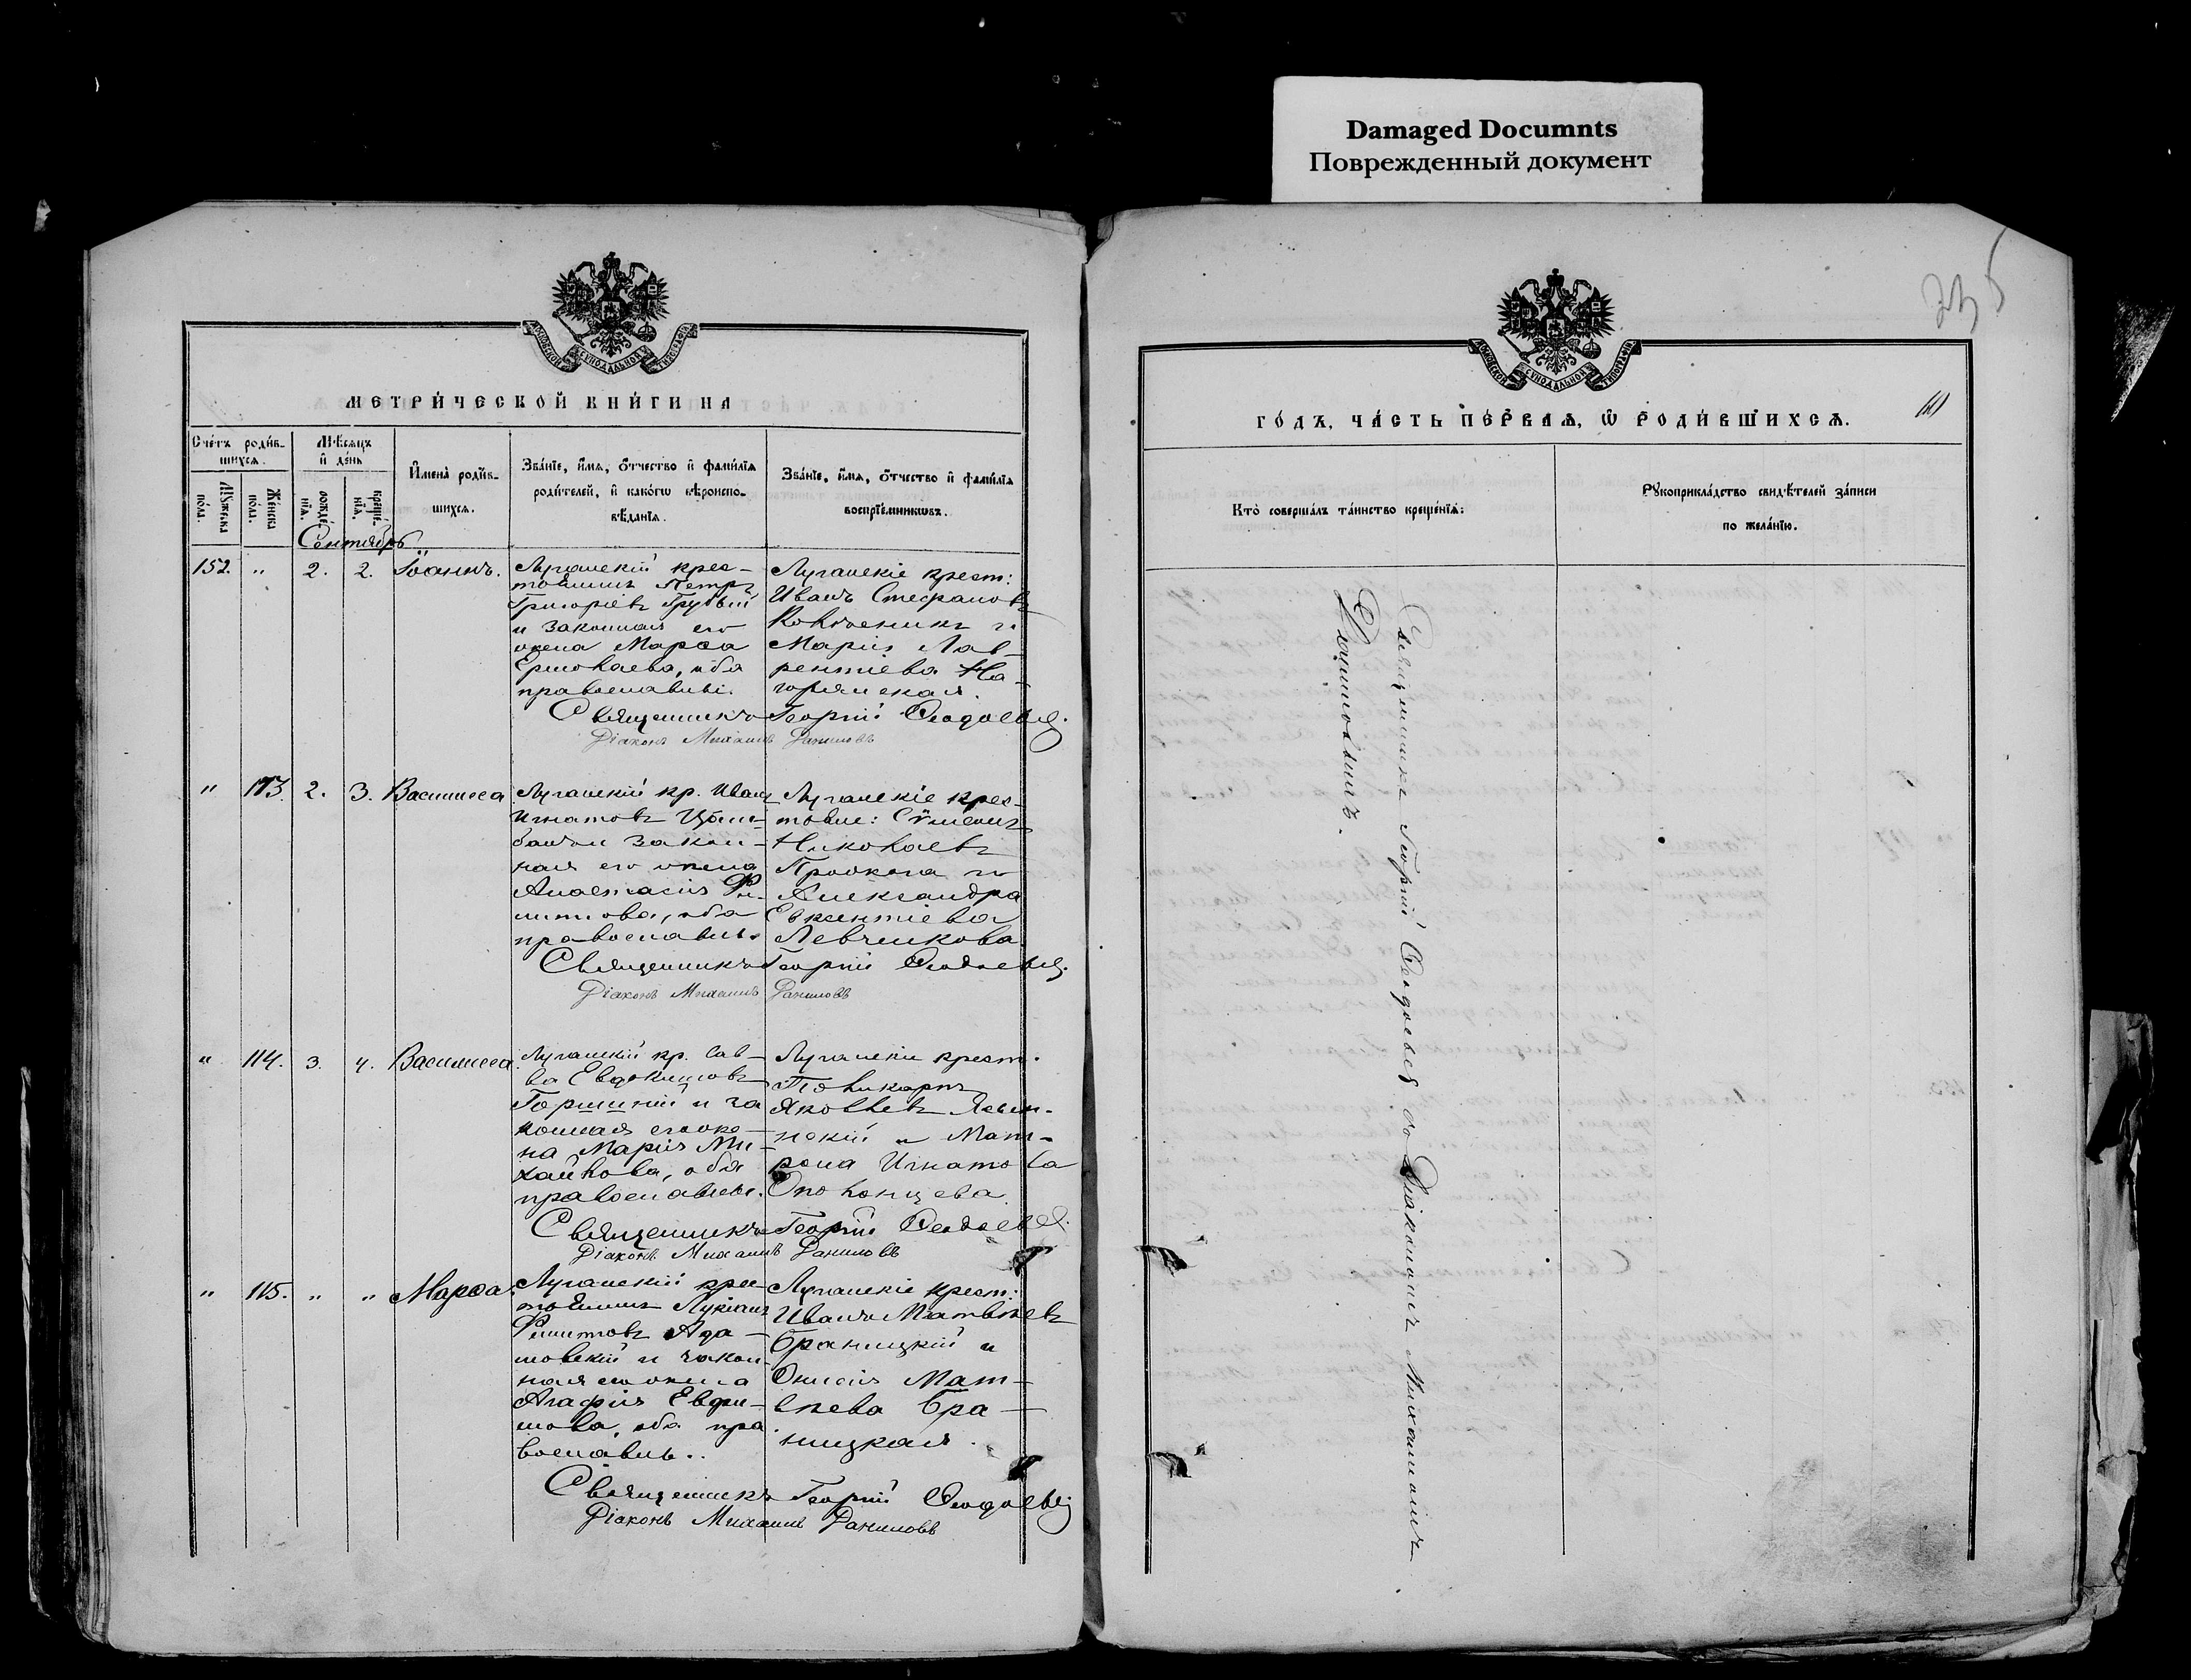 Damaged Documnts
Поврежденный документ
МОСКОВСКОЙ СѴНОДАЛЬНОЙ ТИПОГРАФІИ
МЕТРИ́ЧЕСКОЙ КНИ́ГИ НА
Сче́тъ роди́в-
шихся.
Мѣ́сяцъ
и҆ де́нь
Мꙋ́жеска
по́ла.
Же́нска
по́ла.
рожде́-
нїѧ.
креще́-
нїѧ.
И҆мена̀ роди́в-
шихсѧ.
Зва́нїе, и҆́мѧ, ѻ҆́тчество и҆ фами́лїѧ
роди́телей, и҆ како́гѡ вѣроиспо-
вѣ́данїѧ.
Зва́нїе, и҆́мѧ, ѻ҆́тчество и҆ фами́лїѧ
воспрїе́мникѡвъ.
Сентябрь
152. " 2. 2. Іоаннъ.
Луганскій крес-
тьянинъ Петръ
Григоріевъ Грубый
и законная его
жена Марѳа
Ермолаева, оба
православные.
Луганскіе крест:
Иванъ Стефановъ
и
Марія Лав-
рентіева На-
горянская.
Священникъ Георгій
Діаконъ Михаилъ Даниловъ
" 113. 2. 3. Василисса
Луганскій кр. Иванъ
Игнатовъ
и закон-
ная его жена
Анастасія Фи-
липпова, оба
православн.
Луганскіе крес-
тьяне: Сѵмеонъ
Николаевъ
и
Александра
Евксентіева
Левченкова
Священникъ Георгій
Діаконъ Михаилъ Даниловъ
" 114. 3. 4. Василисса
Луганскій кр. Сав-
ва Евдокимовъ
и за
конная его же-
на Марія Ми-
хайлова, оба
православные.
Луганскіе крест.
Поликарпъ
Яковлевъ
и Мат-
рона Игнатова
Священникъ Георгій
Діаконъ Михаилъ Даниловъ
" 115. " " Марѳа.
Луганскій крес-
тьянинъ Лукіанъ
Филиповъ Ада-
мовскій и закон-
ная его жена
Агафія Евфи-
мова, оба пра
вославн..
Луганскіе крест:
Иванъ Матвѣевъ
Браницкій и
Матѳ-
ѣева Бра-
ницкая.
Священникъ Георгій
Діаконъ Михаилъ Даниловъ
235
МОСКОВСКОЙ СѴНОДАЛЬНОЙ ТИПОГРАФІИ
ГО́ДЪ, ЧА́СТЬ ПЕ́РВАѦ, Ѿ РОДИ́ВШИХСѦ.
Кто̀ соверша́лъ та́инство креще́нїѧ:
Рꙋкоприкла́дство свидѣ́телей за́писи
по жела́нїю.
Священникъ Георгій съ Діакономъ Михаиломъ
Даниловымъ.